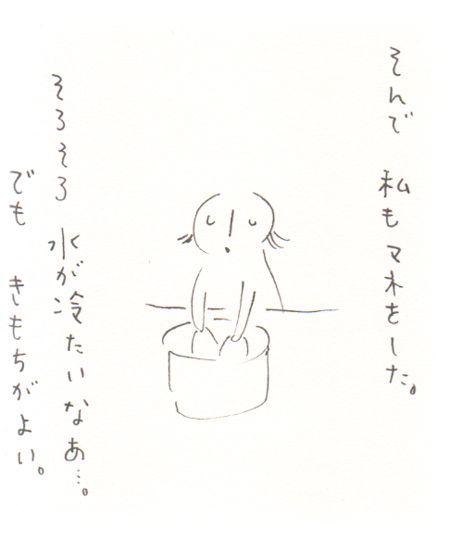 そんで 私もマネをした。
そろそろ 水が冷たいなあ…。
でも きもちがよい。